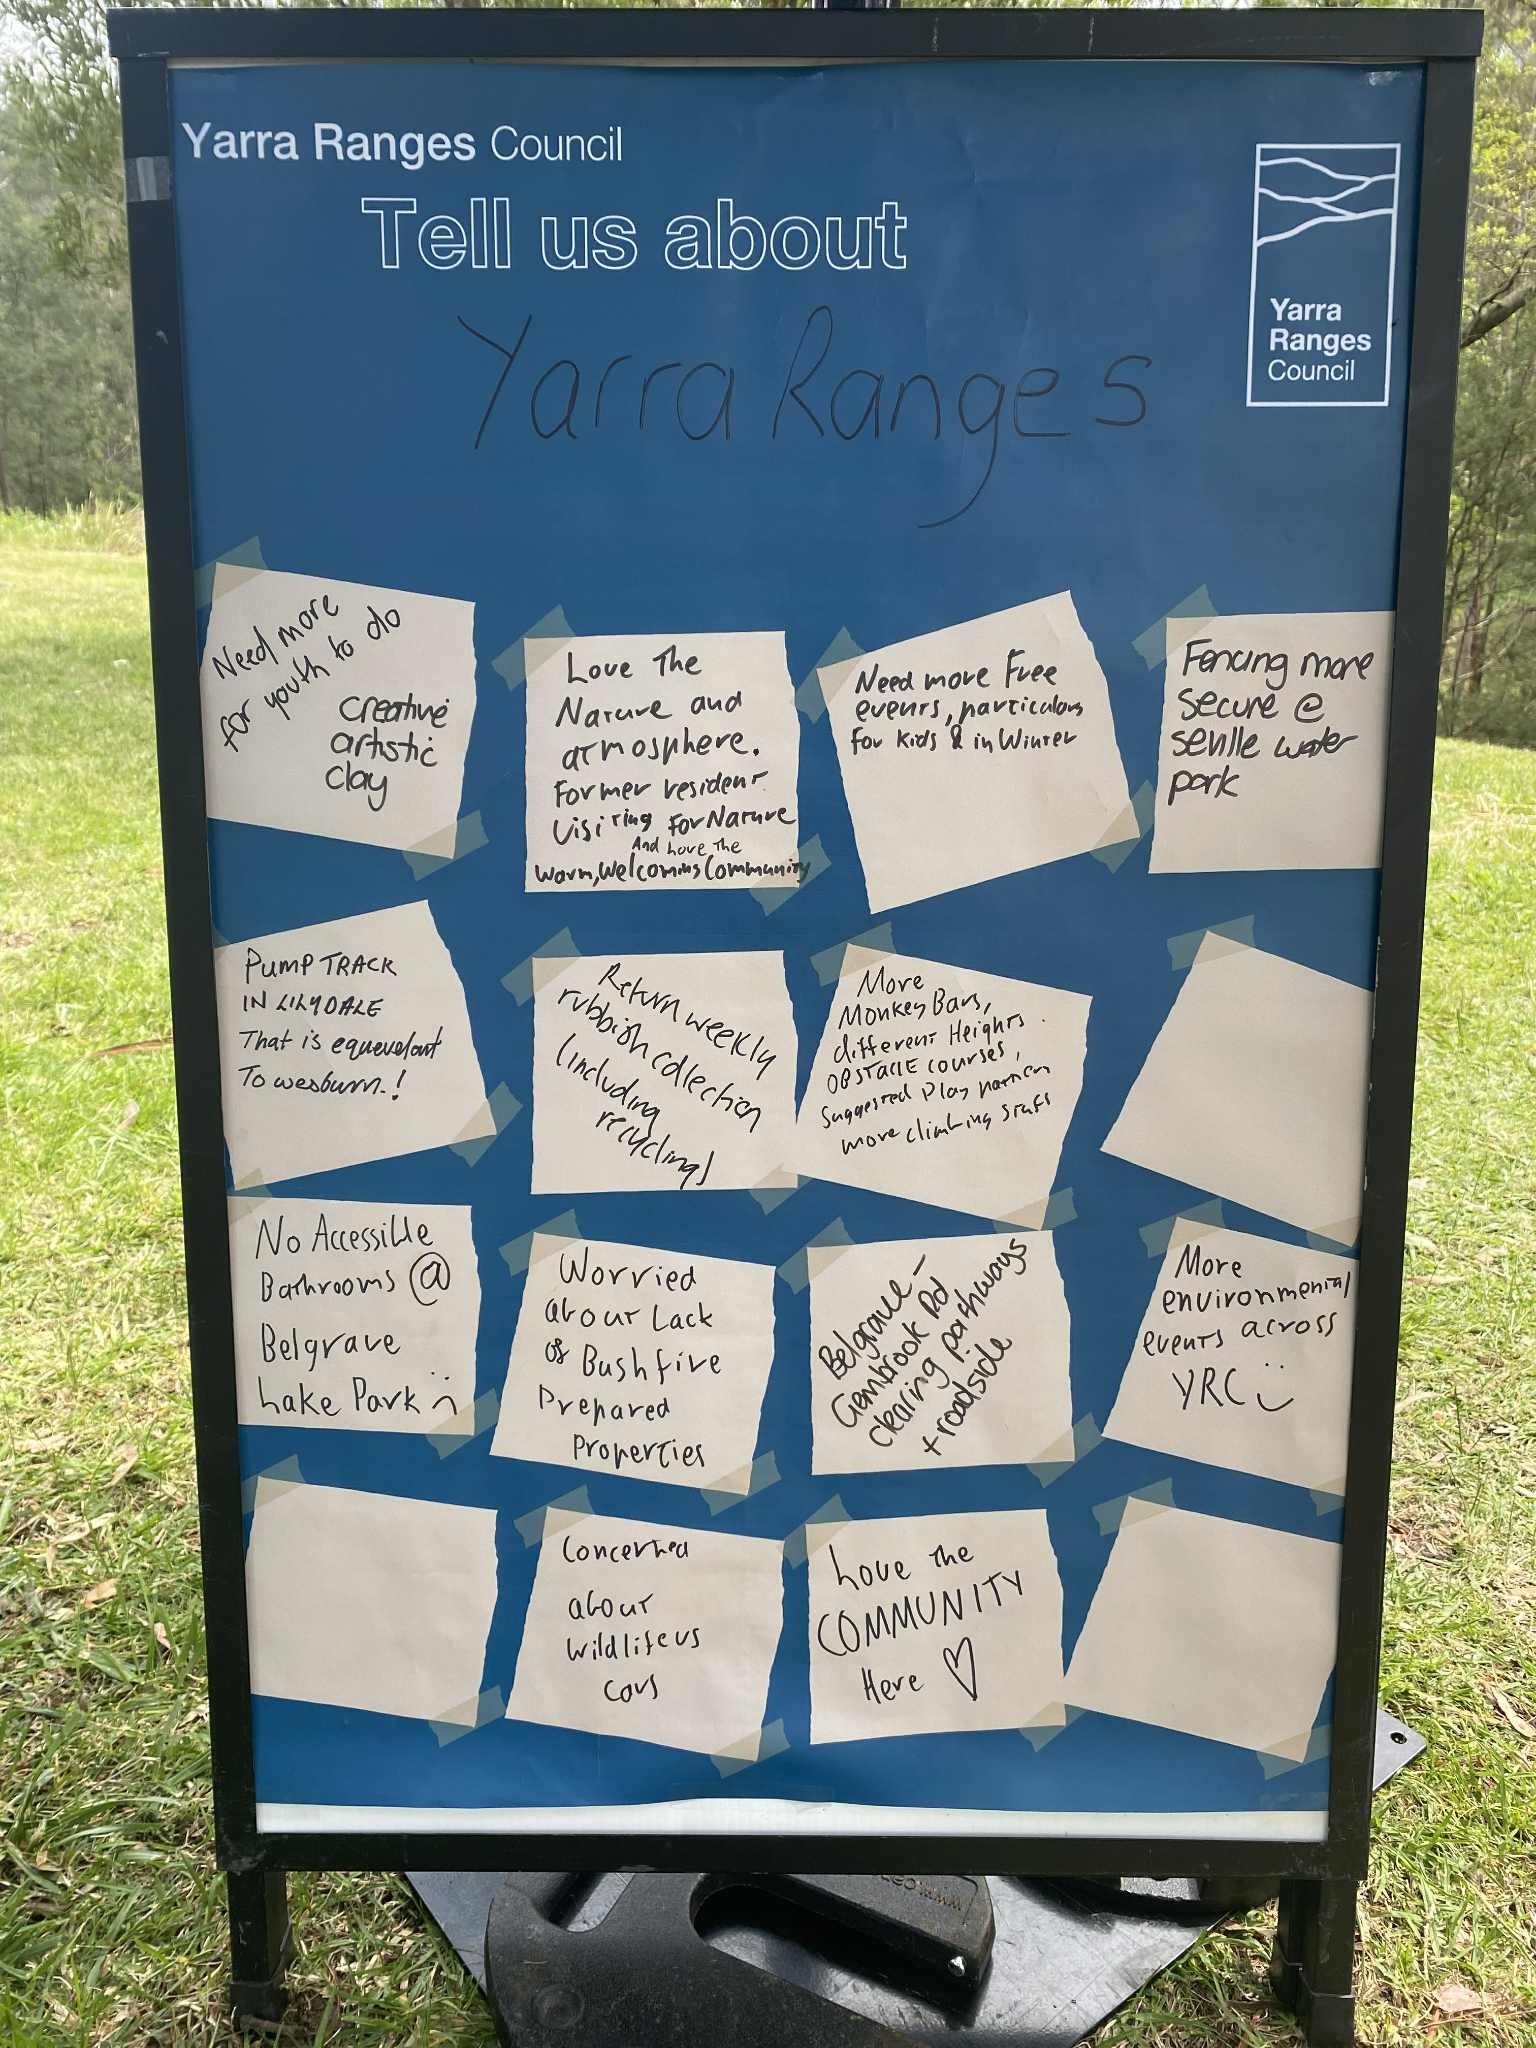 Yarra Ranges Council
Tell us about
Yarra
Ranges
Council
Yarra Ranges
Need more
for youth to do
creative
artistic
clay
Love The
Nature and
atmosphere.
Former resident
visiting for Nature
And Love The
warm, welcoming Community
Need more Free
events, particulary
for kids & in Winter
Fencing more
secure @
seville water
park
PUMP TRACK
IN LILYDALE
That is equevelant
To wesburn!
Return weekly
rubbish collection
(including
recycling)
More
Monkey Bars,
different Heights.
OBSTACLE COURSES,
Suggested Play
more climbing stuff
No Accessible
Bathrooms @
Belgrave
Lake Park :(
Worried
about Lack
of Bushfire
Prepared
Properties
Belgrave -
Gembrook Rd
clearing pathways
+ roadside
More
environmental
events across
YRC :)
Concerned
about
wildlife vs
cars
Love the
COMMUNITY
Here ♡